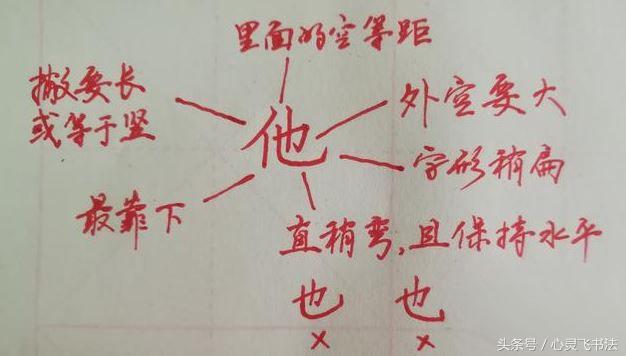 里面的空等距
撇要长
或等于竖
外空要大
他
字形稍扁
最靠下
直稍弯,且保持水平
也 也
× ×
头条号 / 心灵飞书法